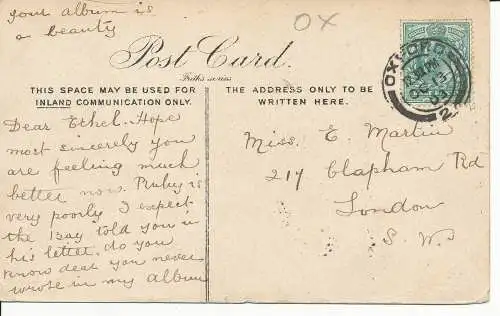 your album is
a beauty
OX
Post Card.
Faiths series
THIS SPACE MAY BE USED FOR
INLAND COMMUNICATION ONLY.
THE ADDRESS ONLY TO BE
WRITTEN HERE.
OXFORD
Dear Ethel. Hope
most sincerely you
are feeling much
better now. is
very poorly I expect
the Bay told you in
his letter. do you
know dear you never
wrote in my album
Miss. E. Martin
217 Clapham Rd
London
S. W.